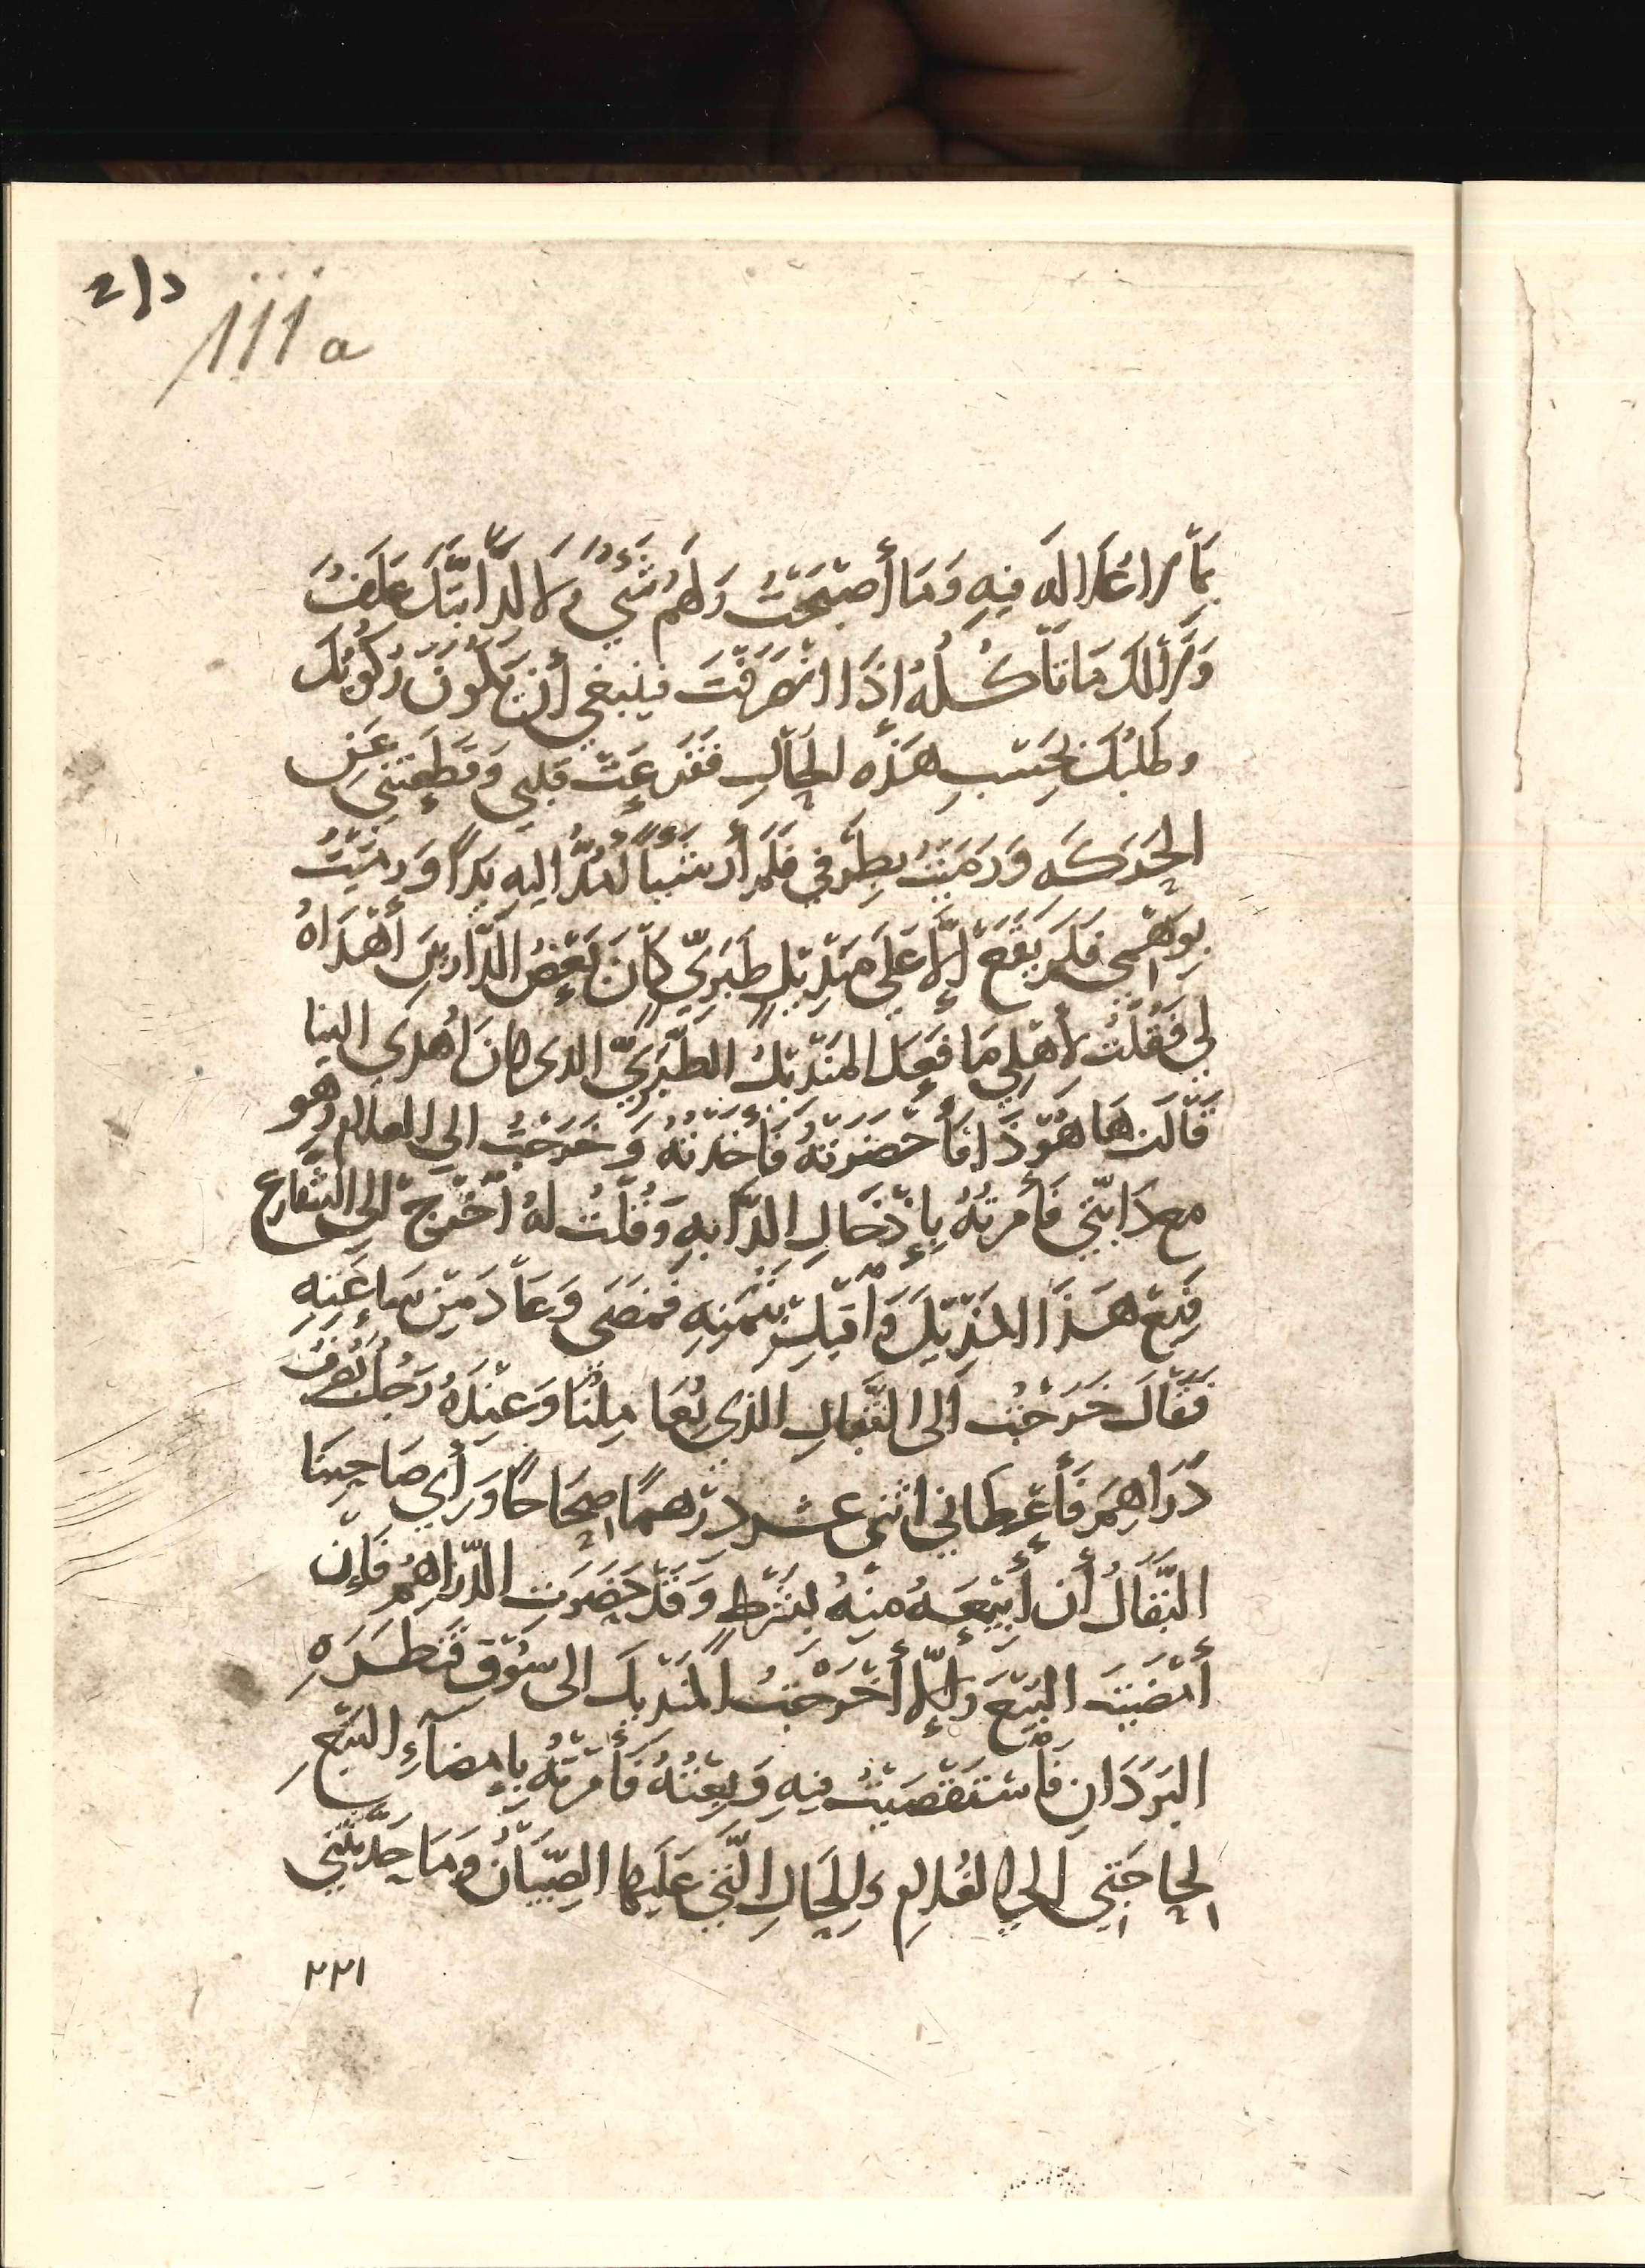 داع
111a
بما لا غَدا له فيه وَمَا أصبَحَتْ وَلهم شيءٌ ولا لدابَّتك علفٌ
وَلا لك مَا تأكُلهُ إذا انصَرَفْتَ فينبغي أن يكُونَ ركُوبُك
وطلبُك بحَسبِ هَذه الحَالِ فقَدَعَتْ قلبي وَقَطَعتني عَن
الحَركَه وَرَمَيتُ بطَرفي فلَم أرَ شيئاً أمُدُّ اليه يَداً وَرمَيتُ
بوَهمي فلَم يقَع إلَّا عَلَى مَنديلٍ طَبَريٍّ كانَ بَعضُ البَزَّازينَ أهدَاهُ
لي فقُلتُ لأهلي مَا فعَل المَنديلُ الطَّبَريُّ الذى كانَ أهدى الينا
قَالَت هَا هُوَذَا فأحضَرَتهُ فأخَذتهُ وَخَرَجتُ الى الغلام وهو
مع دَابَّتي فأمَرتهُ بإدخَالِ الدَّابه وَقُلتُ لهُ اخرُج الى الشَّارع
فَبِع هَذَا المَنديلَ وَأقبِل بثَمَنهِ فمضَى وَعَادَ مِن سَاعَتِهِ
فقَالَ خَرَجتُ الى البَقَالِ الذي يُعَامِلُنا وَعِندَهُ رَجُلٌ يُصَرِّفُ
دَرَاهِمَ فأعطاني اثنى عشر درهمًا صِحَاحًا وَرَأى صَاحِبنَا
البَقَالُ أن أبيعَهُ منهُ بشَرطٍ وَقَد حَضَرَتِ الدَّرَاهِمُ فَإن
أمضَيتَ البَيعَ وَإلَّا أخرَجتُ المَنديلَ الى سُوقِ قنطَرَهِ
البَرَدَانِ فَاستَقصَيتُ فيهِ وَبِعتُهُ فأمَرتُهُ بإمضَآءِ البَيعِ
لِحَاجَتي الى الغُلامِ وَلِلحَالِ الَّتي عَلَيها الصِّبيَانُ وَمَا حَدَّثَتني
٢٢١